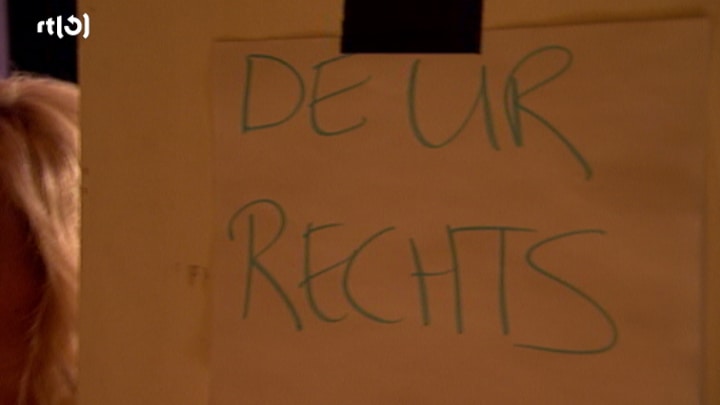 rtl5
DEUR
RECHTS